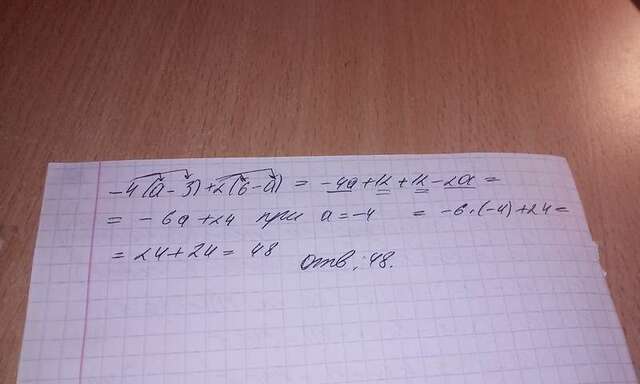 -4(a-3)+2(6-a) = -4a+12+12-2a=
= -6a+24 при a=-4 = -6·(-4)+24=
= 24+24= 48 отв.:48.